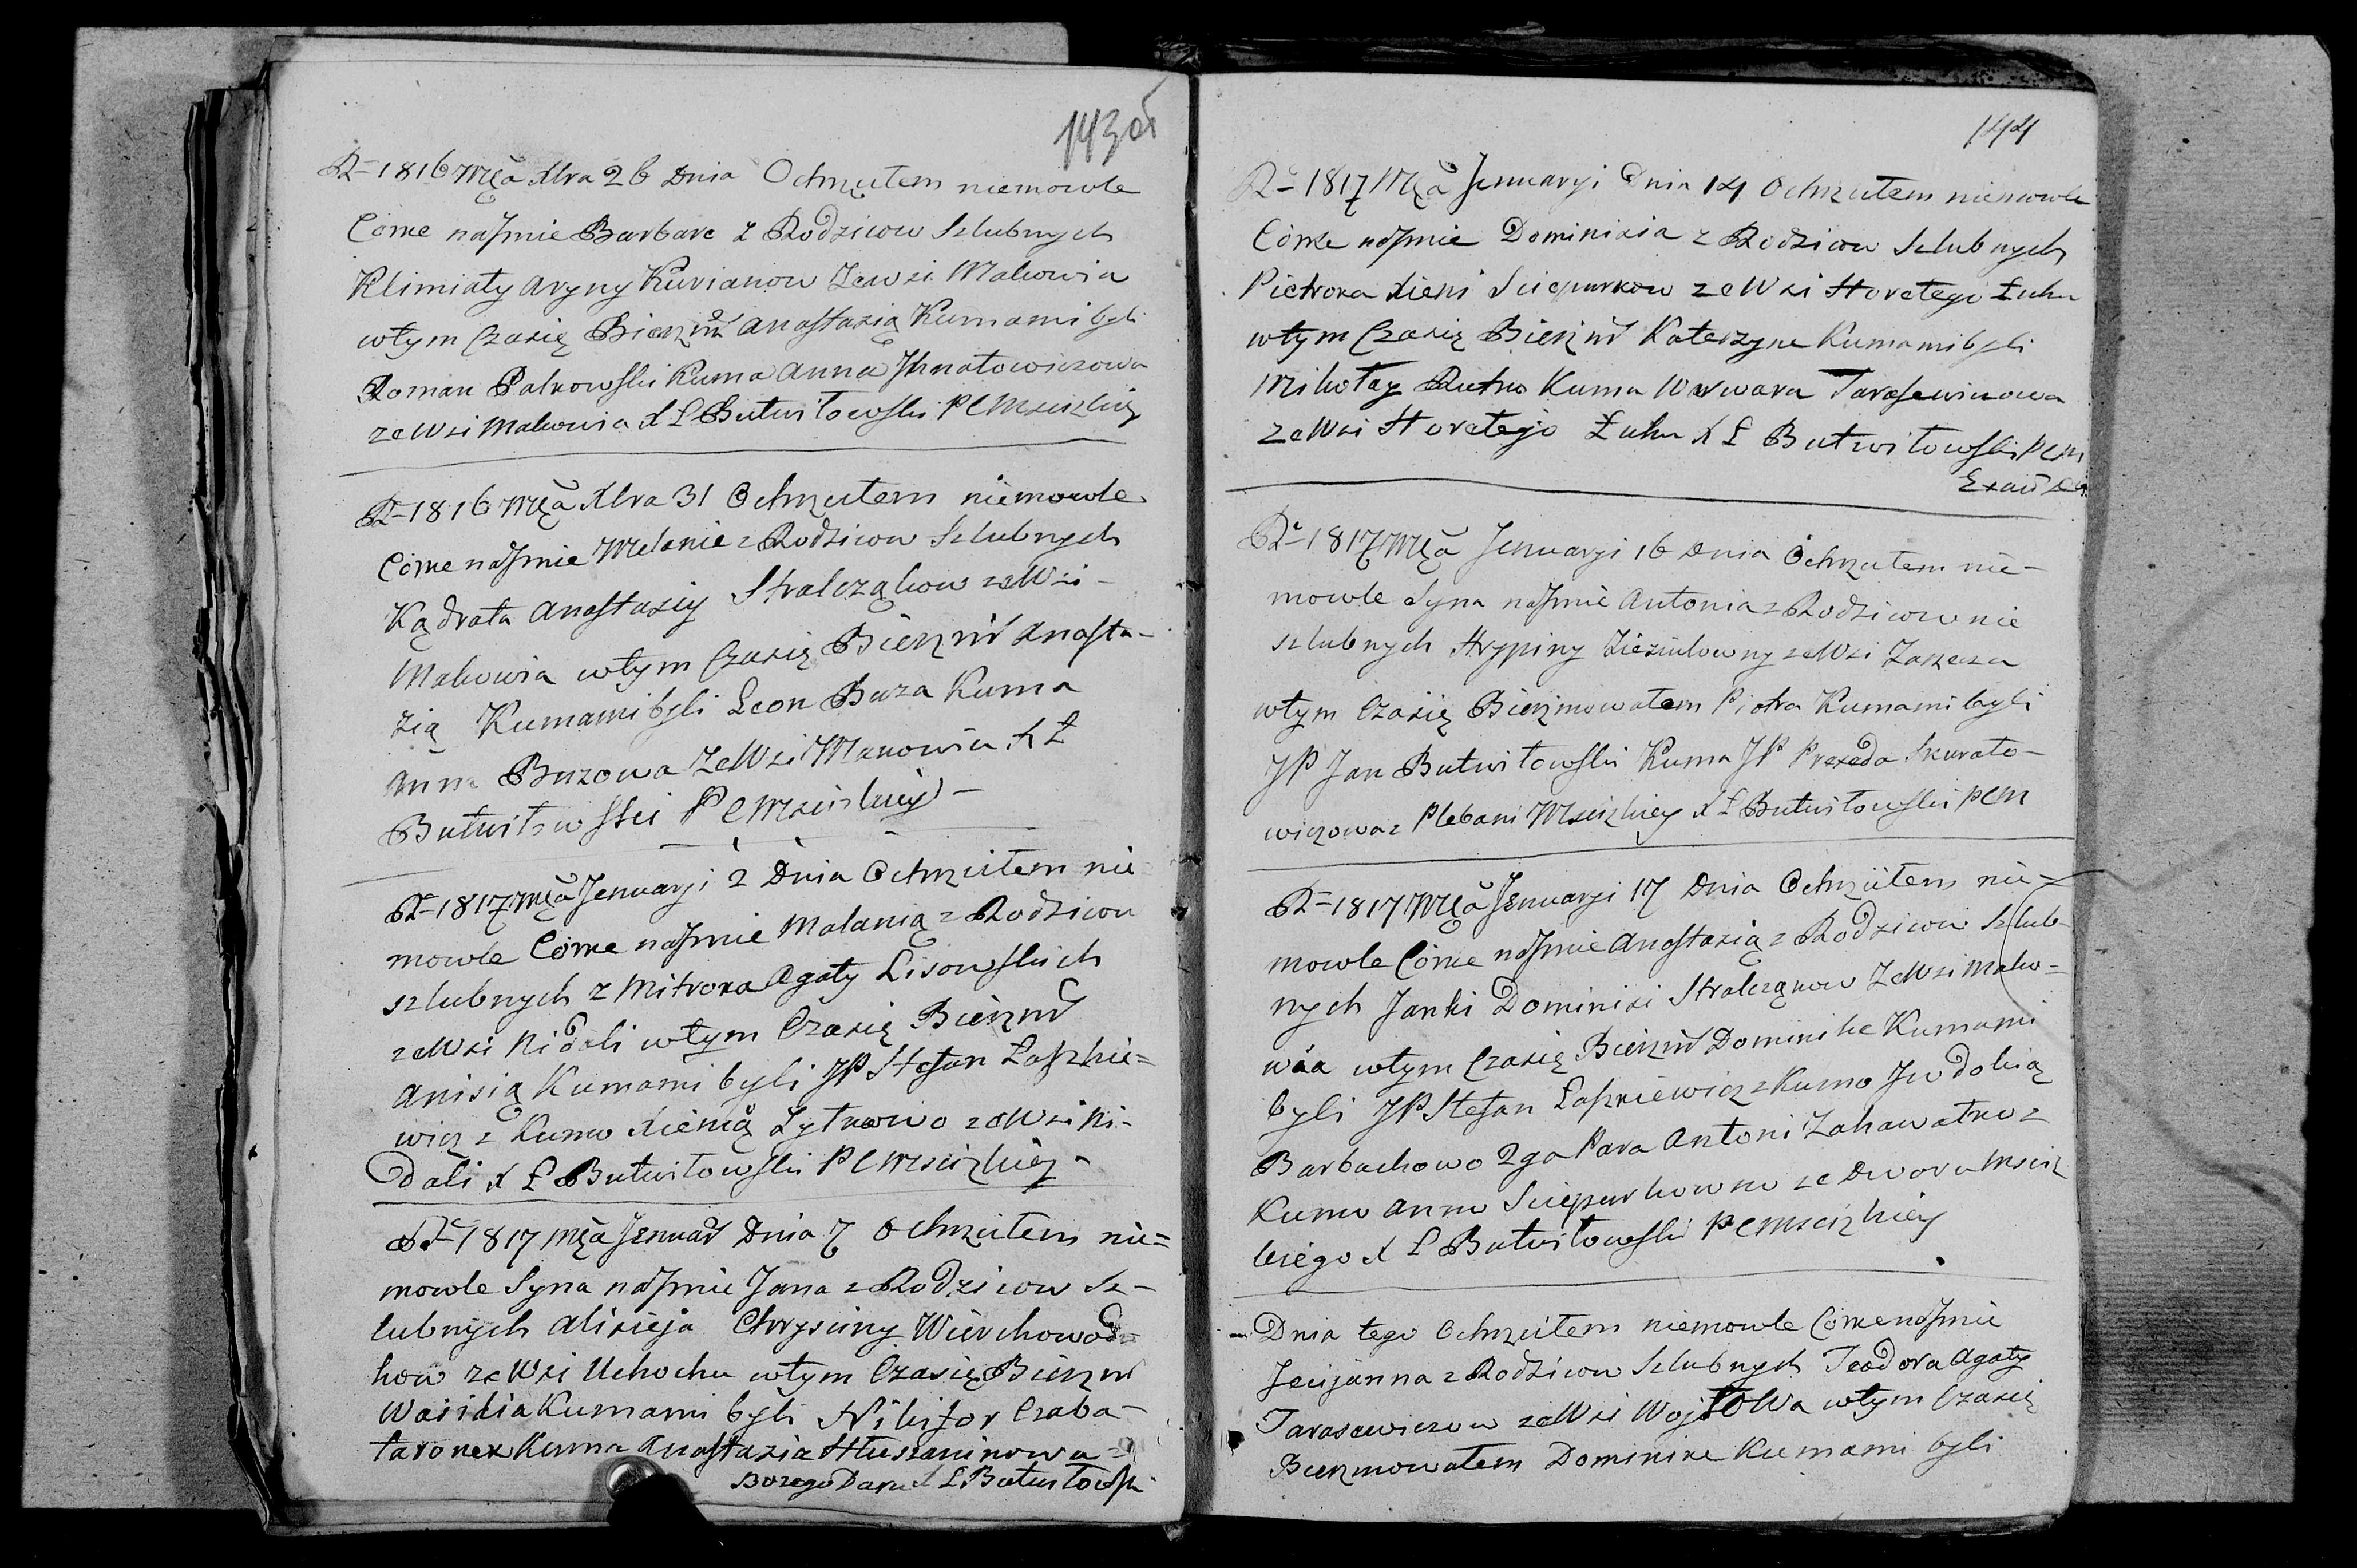 143об
R= 1816 Mẹa Xbra 26 Dnia Ochrzciłem niemowle
Córke naImie Barbare z Rodzicow Szlubnych
Klimiaty Aryny Kurianow Zewsi Makowia
wtym Czasię Bierzm Anastazią Kumami byli
Roman Patrowski Kuma Anna Ihnatowiczowa
zeWsi Makowia X Ł Butwiłowski P C Mścizkiey
R= 1816 Męa Xbra 31 Ochrzciłem niemowle
Córke naImie Melanie z Rodzicow Szlubnych
Kądrata Anastaziy Stralcząkow zeWsi -
Makowia wtym Czasię Bierzm Anasta-
zią Kumami byli Leon Buza Kuma
Anna Buzowa ZeWsi Makowia X Ł
Butwiłowski P C Mścizkiey -
R= 1817 Męa Jenuaryi 2 Dnia Ochrzciłem nie
mowle Córke naImie Malanią z Rodzicow
szlubnych z Mitrona Agaty Lisowskich
zeWsi Nidali wtym Czasię Bierzm
Anisią Kumami byli JP Stefan Łaszkie=
wicz z Kumo Xienią Żytkowo zeWsi Ni-
dali X Ł Butwiłowski P C Mścizkiey -
R= 1817 Męa Jenuar Dnia 7 Ochrzciłem nie=
mowle Syna naImie Jana z Rodzicow Sz-
lubnych Alixieja Chrysciny Wierchowod=
kow zeWsi Uchochu wtym Czasię Bierzm
Wasidia Kumami byli Nikifor Czaba-
taronek Kuma Anastazia Hłuszaninowa
Bozego Daru X Ł Butwiłowski
144
R= 1817 Męa Jenuaryi Dnia 14 Ochrzciłem niemowle
Córke naImie Dominisia z Rodzicow Szlubnych
Pietrona Xieni Sciepurkow zeWsi Horełego Łuhu
wtym Czasię Bierzm Katerzyne Kumami byli
Mikołay Rutko Kuma Warwara Tarasewiczowa
zeWsi Horełego Łuhu X Ł Butwiłowski P C M
R= 1817 Męa Jenuaryi 16 Dnia Ochrzciłem nie-
mowle Syna naImie Antonia z Rodzicow nie
szlubnych Hrypiny Ziezulowny zeWsi Zarzecza
wtym Czasię Bierzmowałem Piotra Kumami byli
JP Jan Butwiłowski Kuma JP Prexeda Skurato-
wiczowa z Plebani Mścizkiey X Ł Butwiłowski P C M
R= 1817 Męa Jenuaryi 17 Dnia Ochrzciłem nie=
mowle Córke naImie Anastazią z Rodzicow Szlub-
nych Janki Dominisi Stralcząkow ZeWsi Mako=
wia wtym Czasię Bierzm Dominike Kumami
byli JP Stefan Łaszkiewicz z Kumo Jwdokią
Barbachowo 2ga Para Antoni Zahawatko z
Kumo Anno Sciepurkowno ze Dworu Mściz
kiego X Ł Butwiłowski P C Mścizkiey
- Dnia tego Ochrzciłem niemowle Córke naImie
Jeujanna z Rodzicow Szlubnych Teodora Agaty
Tarasewiczow zeWsi Wojtowa wtym Czasię
Bierzmowałem Dominike Kumami byli